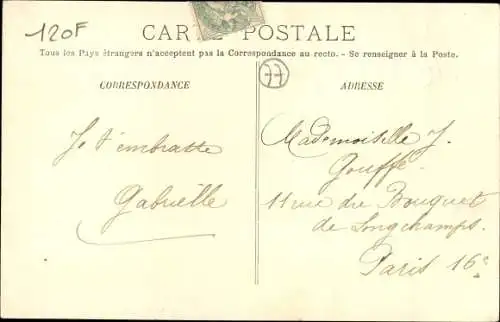 120F
CARTE POSTALE
Tous les Pays étrangers n'acceptent pas la Correspondance au recto. - Se renseigner à la Poste.
CORRESPONDANCE
ADRESSE
Je t'embrasse
Gabrielle
Mademoiselle J.
Gouffé.
11 rue du Bouquet
de Longchamps.
Paris 16e